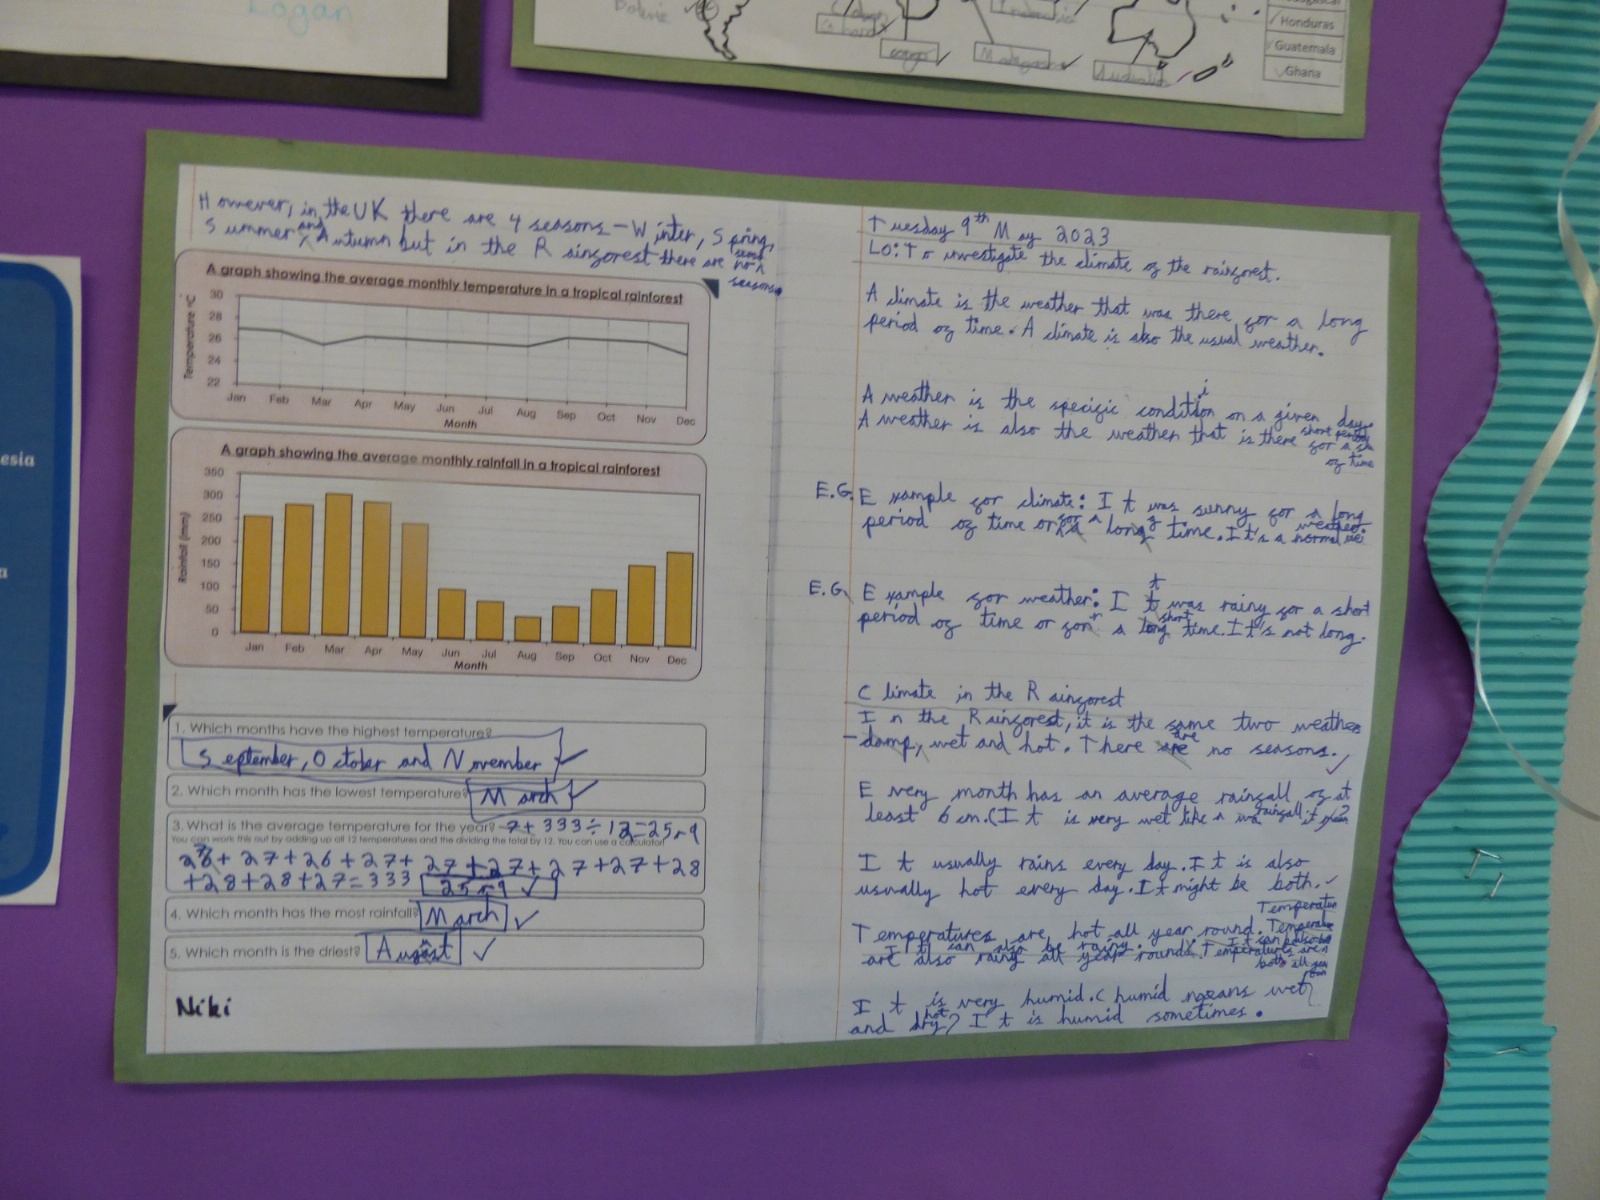 Logan
Bolivia
Congo
Madagascar
Australia
Honduras
Guatemala
Ghana
esia
a
However, in the UK there are 4 seasons - Winter, Spring,
Summer and Autumn but in the Rainforest there are no
seasons.
A graph showing the average monthly temperature in a tropical rainforest
Temperature °C
30
28
26
24
22
Jan Feb Mar Apr May Jun Jul Aug Sep Oct Nov Dec
Month
A graph showing the average monthly rainfall in a tropical rainforest
Rainfall (mm)
350
300
250
200
150
100
50
0
Jan Feb Mar Apr May Jun Jul Aug Sep Oct Nov Dec
Month
1. Which months have the highest temperature?
September, October and November
2. Which month has the lowest temperature? March
3. What is the average temperature for the year? 333÷12=25.9
You can work this out by adding up all 12 temperatures and the dividing the total by 12. You can use a calculator!
28+27+26+27+27+27+27+27+28
+28+28+27=333 25.9
4. Which month has the most rainfall? March
5. Which month is the driest? August
Niki
Tuesday 9th May 2023
LO: To investigate the climate of the rainforest.
A climate is the weather that was there for a long
period of time. A climate is also the usual weather.
A weather is the specific condition on a given day.
A weather is also the weather that is there for a short period
of time
E.G. Example for climate: It was sunny for a long
period of time or for a long time. It's a normal weather.
E.G. Example for weather: It was rainy for a short
period of time or for a short time. It's not long.
Climate in the Rainforest
In the Rainforest, it is the same two weather
- damp, wet and hot. There are no seasons.
Every month has an average rainfall of at
least 6 cm. (It is very wet like
It usually rains every day. It is also
usually hot every day. It might be both.
Temperatures are hot all year round.
It can also be rainy
It is very humid. (humid means wet
and hot) It is humid sometimes.